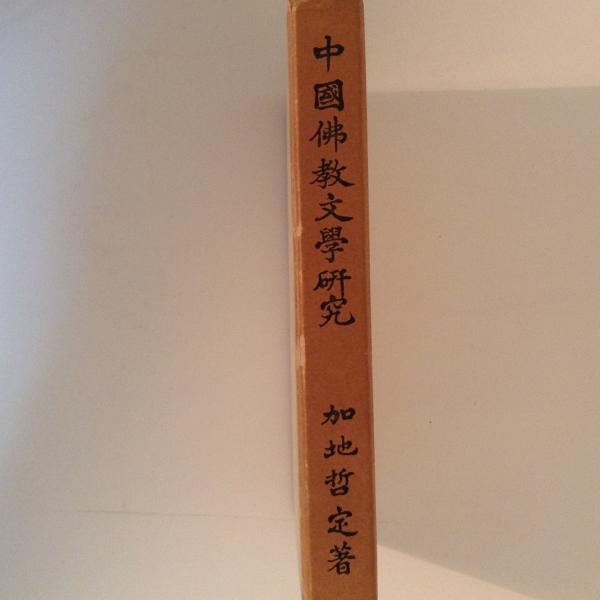 中國佛教文學研究
加地哲定著